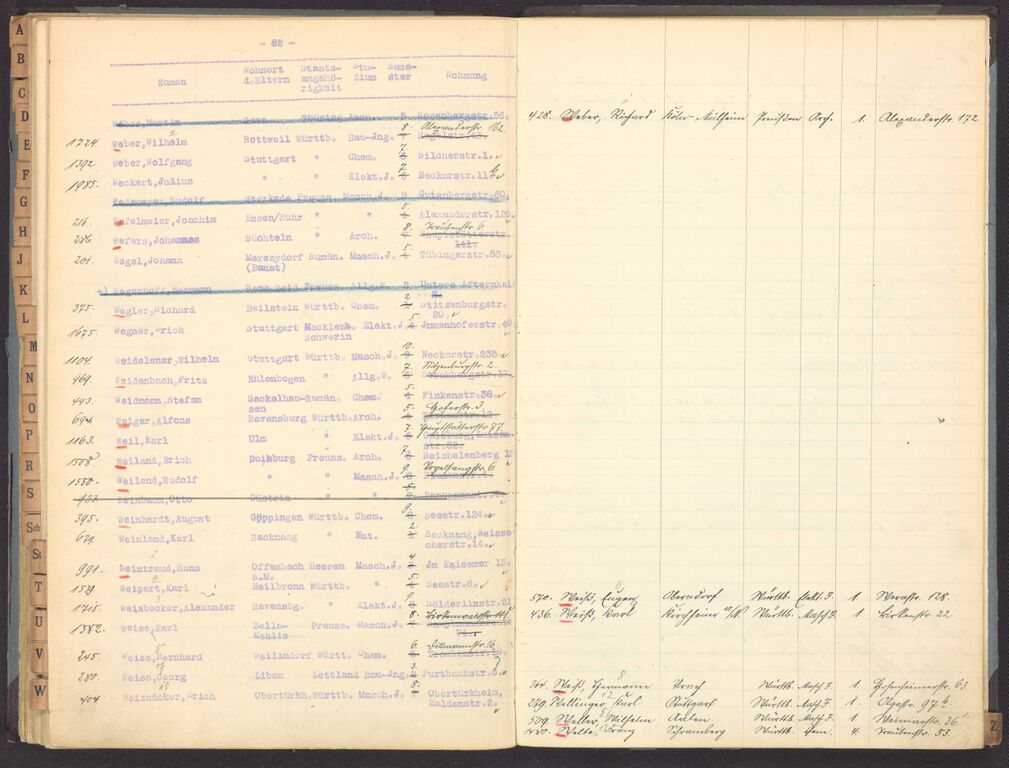 - 82 -
Namen Wohnort d.Eltern Staatsangehörigkbit Studium Semester Wohnung
Weber,Martin Gera Thüring. Arch. 5. Rosenbergstr.56.
1724 Weber,Wilhelm Rottweil Württb. Bau-Jng. 8. Alexanderstr. 162
1392 Weber,Wolfgang Stuttgart " Chem. 7. Silcherstr.1.
1985. Weckert,Julius " " Elekt.J. 7. Neckarstr.11
Wedemeyer,Rudolf Sterkade Preuss. Masch.J. 8. Gutenbergstr.60.
216. Wefelmeier,Joachim Essen/Ruhr " " 5. Alexanderstr.120.
286. Wefers,Johannes Süchteln " Arch. 8. Traubenstr. 6
Hauptstätterstr. 141.
201. Wegel,Johann Merczydorf Rumän. Masch.J. 5. Tübingerstr.83.
(Banat)
Wegerhoff,Hermann Remscheid Preuss. Allg.W. 2
375. Wegler,Richard Beilstein Württb. Chem. 2 Stitzenburgstr.
20.
1675. Wegner,Erich Stuttgart Mecklenb. Elekt.J. 5. Jmmenhoferstr.40
Schwerin
1104 Weidelener,Wilhelm Stuttgart Württb. Masch.J. 10. Neckarstr.235.
469. Weidenbach,Fritz Ehlenbogen " Allg.W. 7. Stitzenburgstr. 2.
443. Weidmann,Stefan Sackelhau-Rumän. Chem. 5. Finkenstr.38.
sen
694. Weiger,Alfons Ravensburg Württb.Arch. 5. Hoferstr. 3.
1163. Weil,Karl Ulm " Elekt.J. 7. Hauptstätterstr. 77.
1508. Weiland,Erich Duisburg Preuss. Arch. 7. Reichelenberg
1530. Weiland,Rudolf " " Masch.J. 9. Vogelsangstr. 6
933. Weinbaum,Otto Cüstrin " "
395. Weinhardt,August Göppingen Württb. Chem. 9. Seestr.124.
679. Weinland,Karl Backnang " Nat. 2. Backnang,Weissa
cherstr.14.
991. Weintraud,Hans Offenbach Hessen Masch.J. 4. Jm Kaisemer 15.
a.M.
1539. Weipert,Karl Heilbronn Württb. " 5. Seestr.6.
1718. Weisbecker,Alexander Ravensbg. " Elekt.J. 9. Hölderlinstr.21
1382. Weise,Karl Zella- Preuss. Masch.J. 8. Birkenwaldstr.
Mehlis
245. Weiss,Bernhard Weilimdorf Württb. Chem. 6. Dillmannstr. 16.
280. Weiss,Georg Libau Lettland Bau-Jng. 3. Furtbachstr.6.
404 Weizsäcker,Erich Obertürkh.Württb. Masch.J. 5. Obertürkheim,
Haldenstr.2.
428. Weber, Richard Köln-Mülheim Preußen Arch. 1. Alexanderstr. 172
570. Weiß, Eugen Oberndorf Württb. Elekt.J. 1 Werastr. 128.
436. Weiß, Karl Kirchheim Württb. Masch.J. 1. Birkenstr. 22
364. Weiß, Hermann Urach Württb. Masch.J. 1. Hohenheimerstr. 63
289. Wellinger, Karl Stuttgart Württb. Masch.J. 1. Olgastr. 97
509. Weller, Wilhelm Aalen Württb. Masch.J. 1 Weimarstr. 36.
1480. Welte, Franz Schramberg Württb. Chem. 4. Traubenstr. 53.
A
B
C
D
E
F
G
H
J
K
L
M
N
O
P
R
S
Sch
St
T
U
V
W
Z